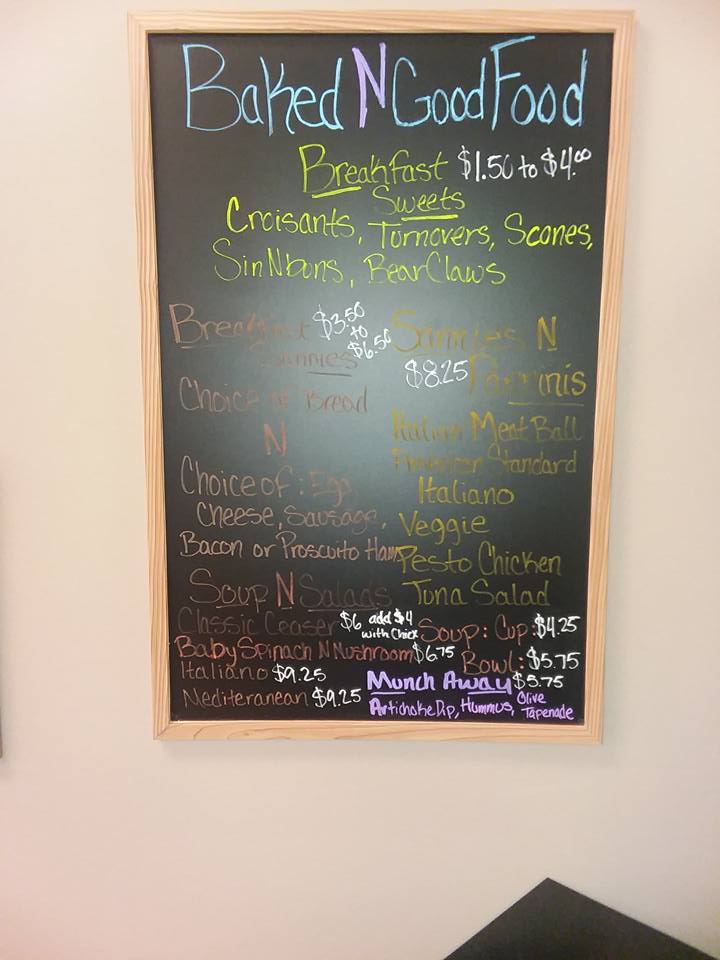 Baked N Good Food
Breakfast $1.50 to $4.00
Sweets
Croisants, Turnovers, Scones,
SinNbuns, BearClaws
Breakfast $3.50
to
$6.50
Sannies
Choice of Bread
N
Choice of: Egg,
Cheese, Sausage,
Bacon or Proscuito Ham
Sannies N
$8.25 Paninis
Italian Meat Ball
American Standard
Italiano
Veggie
Pesto Chicken
Tuna Salad
Soup N Salads
Classic Ceaser $6 add $4
with Chick
Baby Spinach N Mushroom $6.75
Italiano $9.25
Mediteranean $9.25
Soup: Cup: $4.25
Bowl: $5.75
Munch Away $5.75
Artichoke Dip, Hummus, Olive
Tapenade